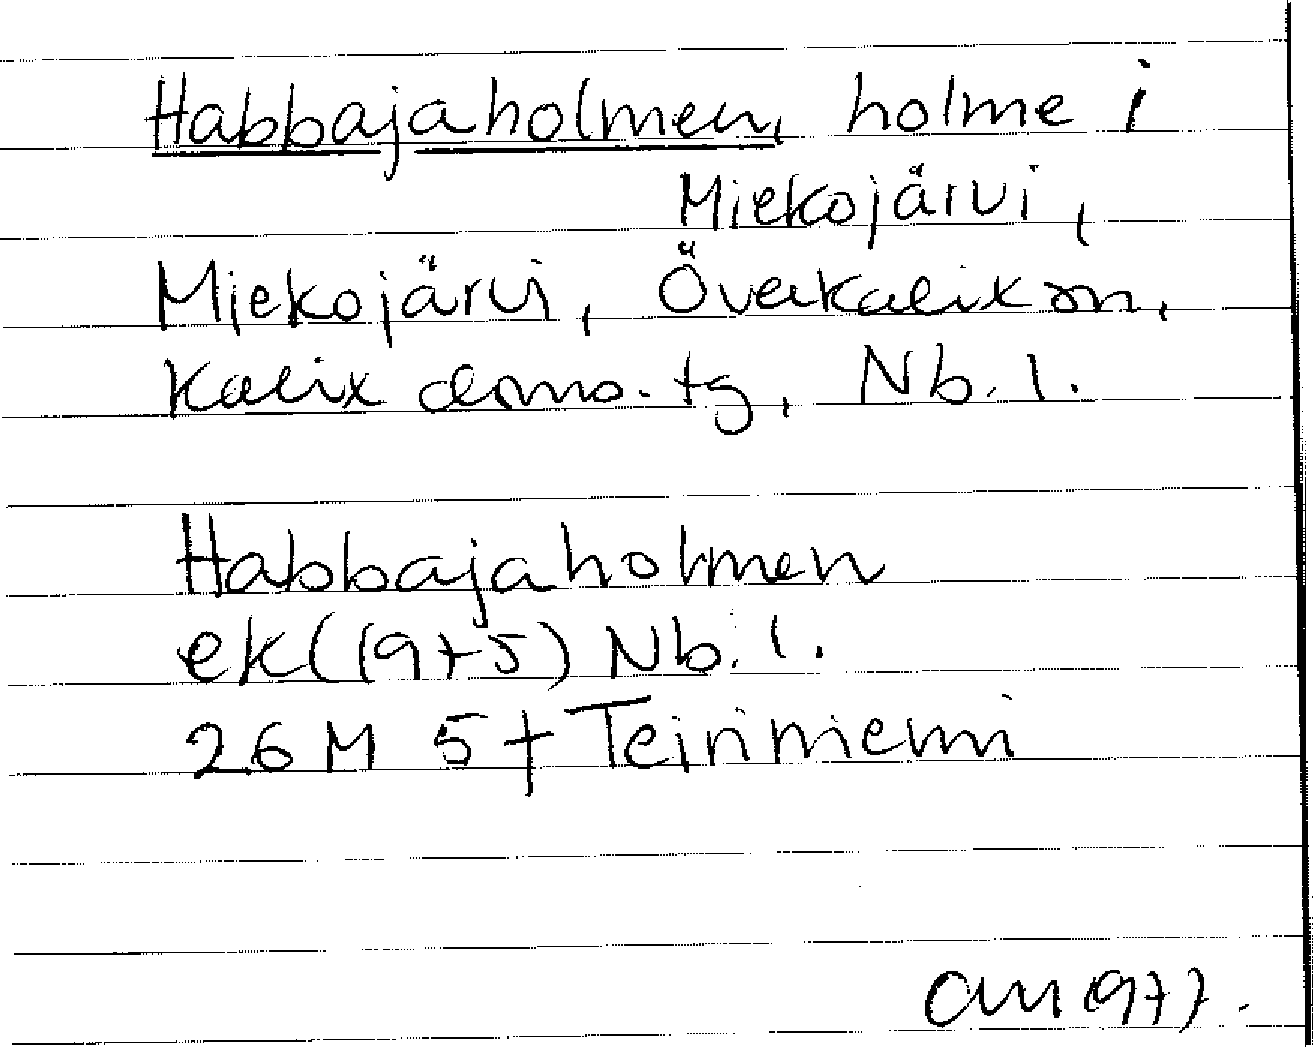 Habbajaholmen, holme i
Miekojärvi,
Miekojärvi, Överkalix sn,
Kalix doms. tg, Nb. l.
Habbajaholmen
ek (1975) Nb. l.
26M 5f Teiriniemi
1977.